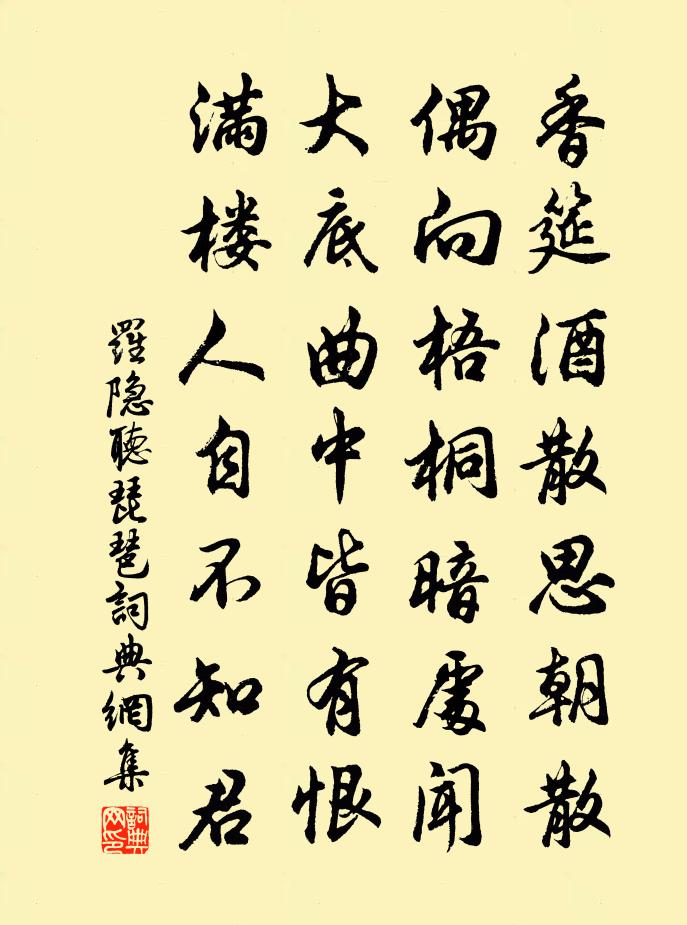 香筵酒散思朝散
偶向梧桐暗處聞
大底曲中皆有恨
满楼人自不知君
羅隐聽琵琶詞典網集
詞典网印